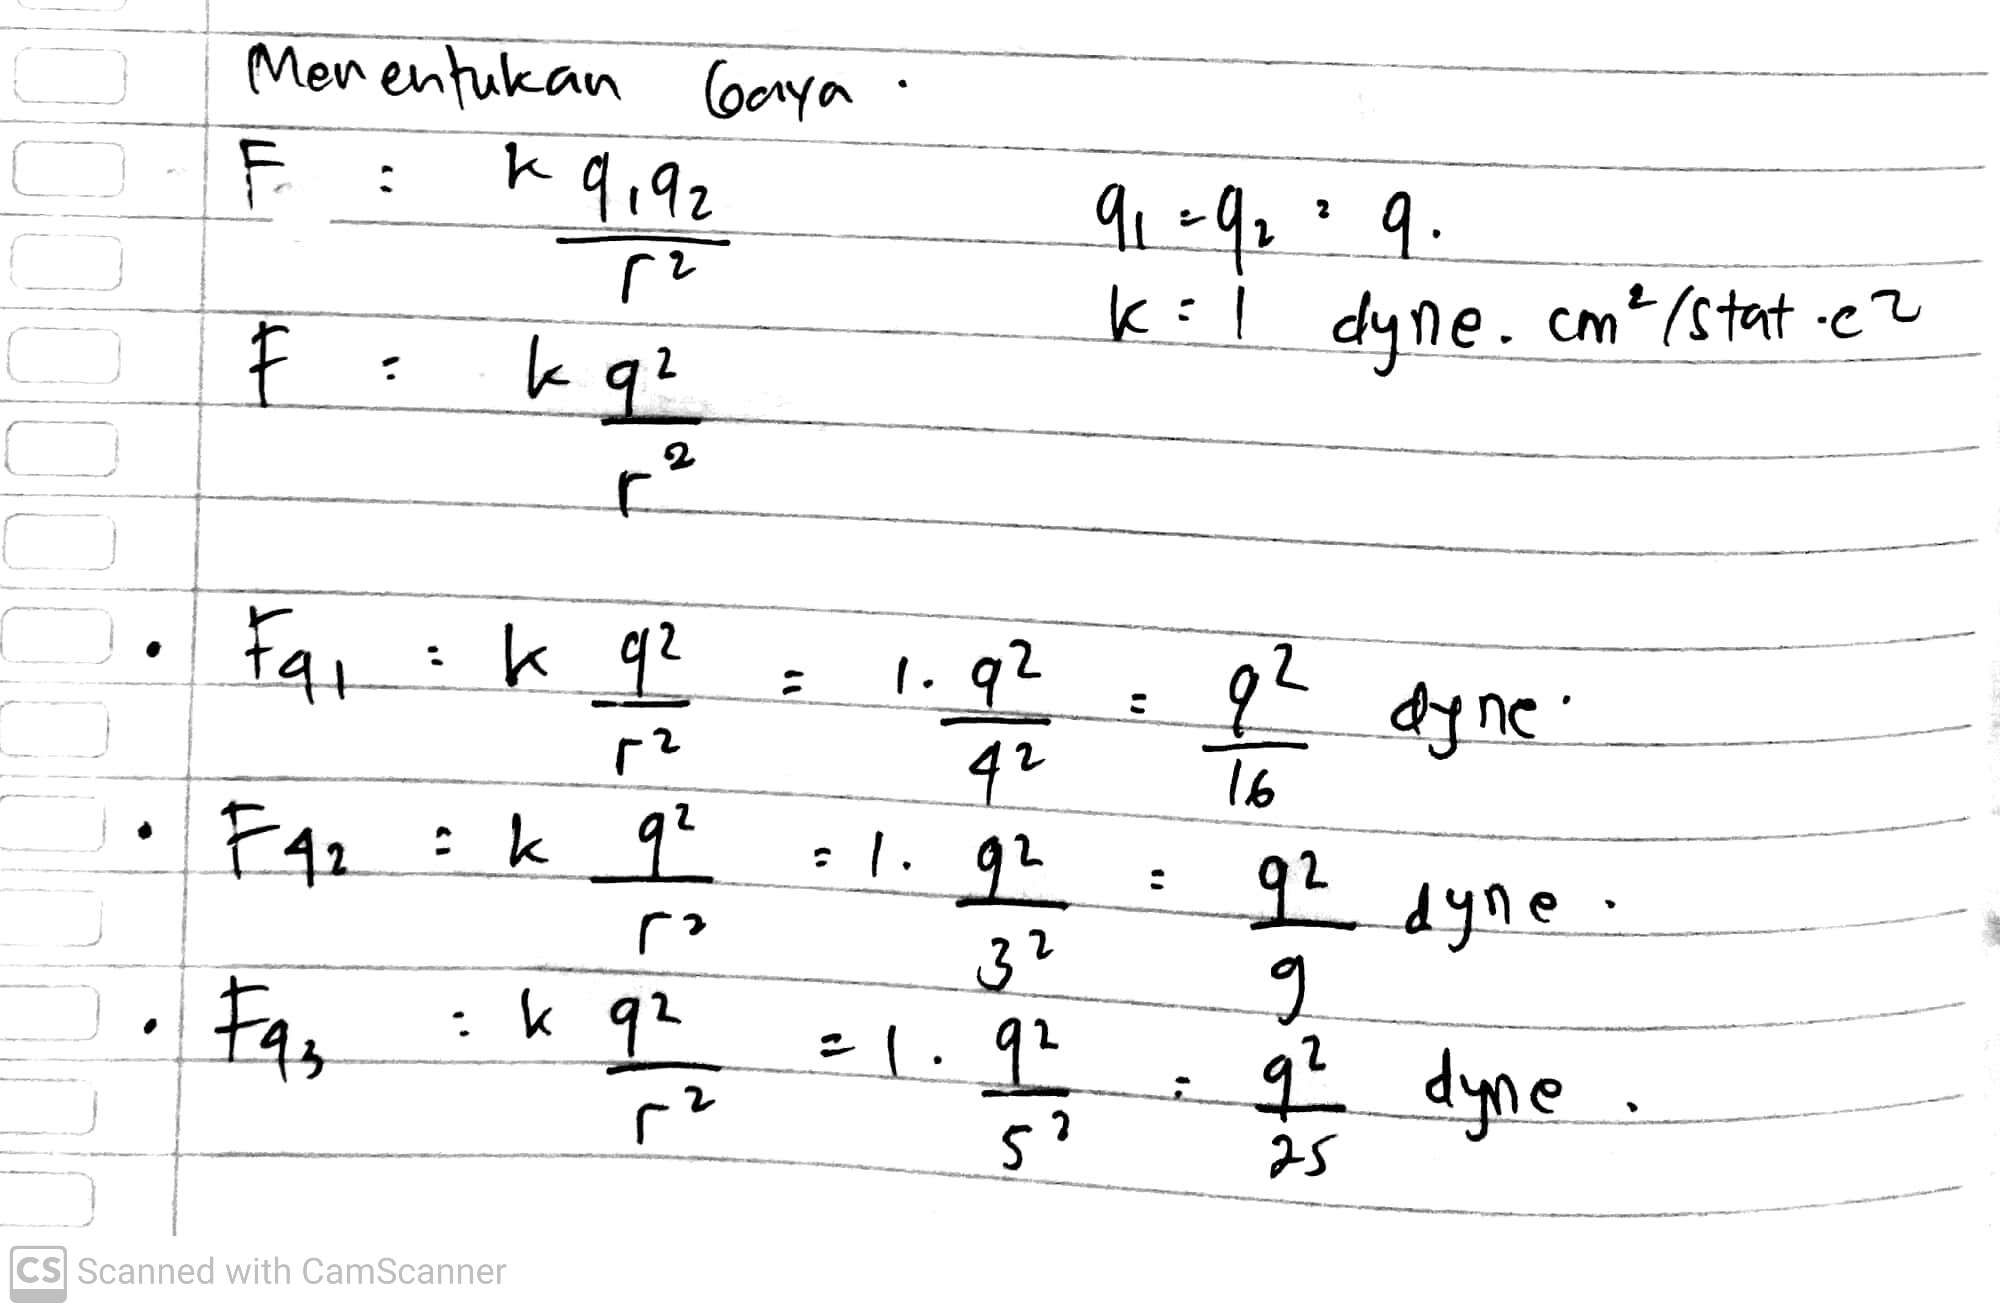 Menentukan Gaya.
F = k q₁q₂ / r²
q₁ = q₂ = q.
k = 1 dyne. cm²/stat.c2
F = k q² / r²
• Fq₁ = k q² / r² = 1. q² / 4² = q² / 16 dyne.
• Fq₂ = k q² / r² = 1. q² / 3² = q² / 9 dyne.
• Fq₃ = k q² / r² = 1. q² / 5² = q² / 25 dyne.
CS Scanned with CamScanner